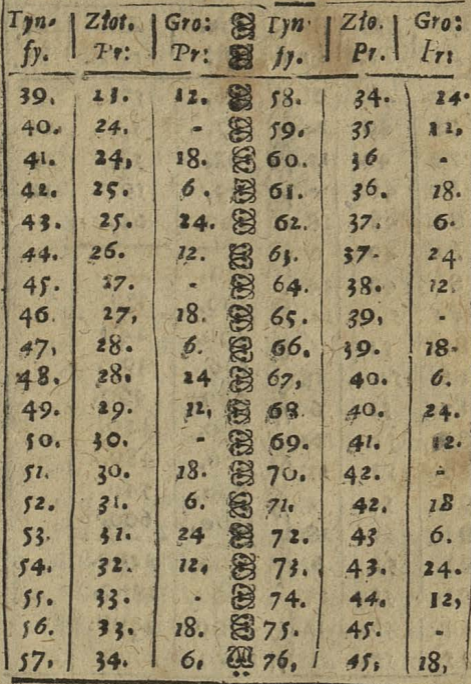 Tyn. Złot. Gro: Tyn Zło. Gro:
fy. Pr: Pr: fy. Pr. Pr:
39. 23. 12. 58. 34. 24.
40. 24. - 59. 35 12,
41. 24, 18. 60. 36 -
42. 25. 6. 61. 36. 18.
43. 25. 24. 62. 37. 6.
44. 26. 12. 63. 37. 24
45. 27. - 64. 38. 12.
46. 27, 18. 65. 39, -
47, 28. 6. 66. 39. 18.
48. 28. 24 67, 40. 6.
49. 29. 12, 68 40. 24.
50. 30. - 69. 41. 12.
51. 30. 18. 70. 42. -
52. 31. 6. 71. 42. 18
53. 31. 24 72. 43 6.
54. 32. 12, 73. 43. 24.
55. 33. - 74. 44. 12,
56. 33. 18. 75. 45. -
57. 34. 6, 76, 45, 18,